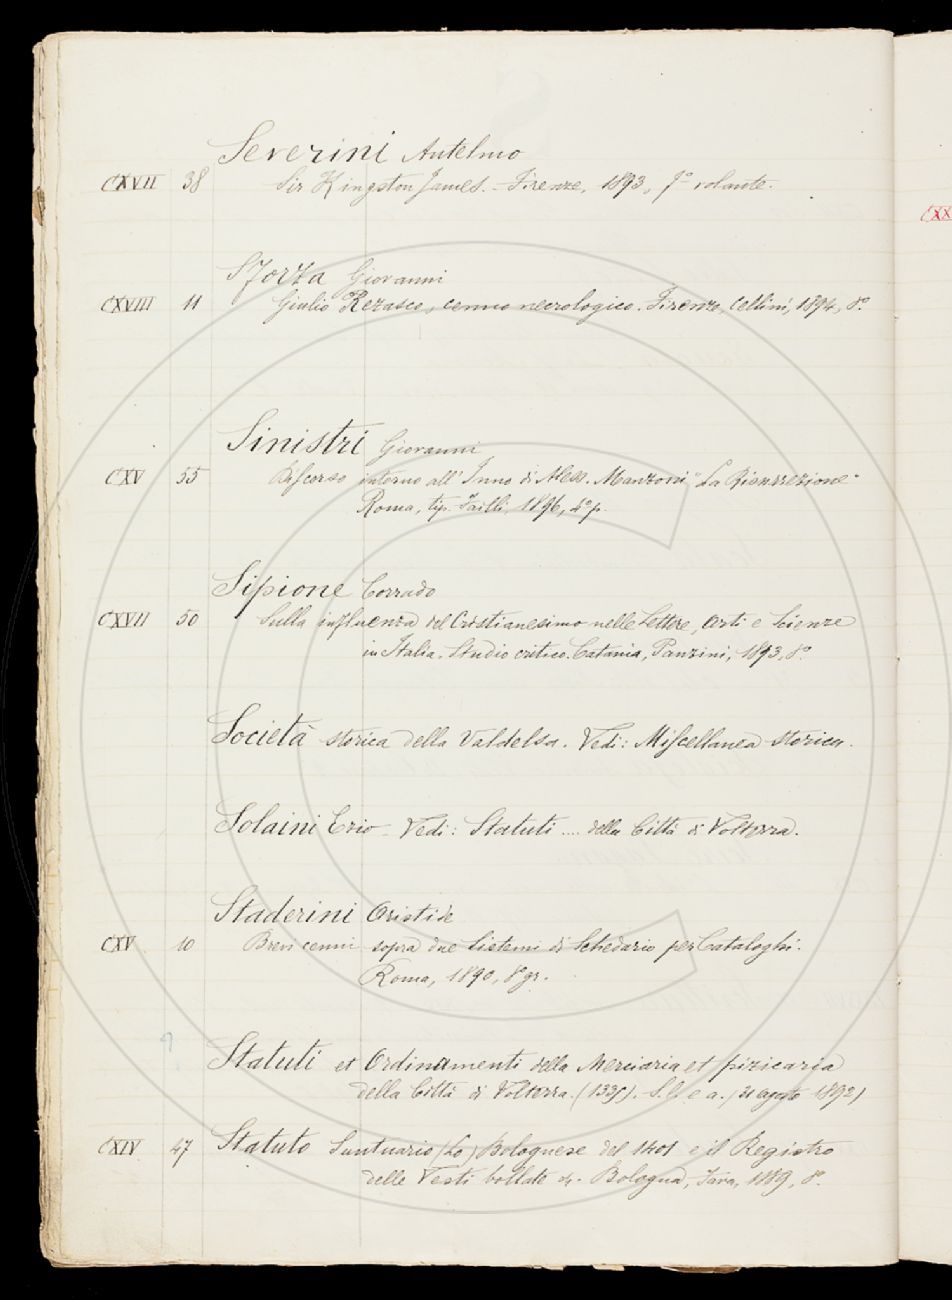 Severini Antelmo
CXVII 38 Sir Kingston James. - Firenze, 1893, f° volante.
Sforza Giovanni
CXVIII 11 Giulio Rezasco, cenno necrologico. Firenze, Cellini, 1894, 8°.
Sinistri Giovanni
CXV 55 Discorso intorno all'Inno di Aless. Manzoni "La Risurrezione"
Roma, tip. 1896, 4° p.
Sipione Corrado
CXVII 50 Sulla influenza del Cristianesimo nelle Lettere, Arti e Scienze
in Italia. Studio critico. Catania, Panzini, 1893, 8°.
Società storica della Valdelsa. Vedi: Miscellanea storica.
Solaini Ezio - Vedi: Statuti .... della Città di Volterra.
Staderini Aristide
CXV 10 Brevi cenni sopra due sistemi di Schedario per Cataloghi.
Roma, 1890, 8° gr.
Statuti et Ordinamenti della Merciaria et pizicaria
della Città di Volterra. (1335). S. l. e a. (31 agosto 1892)
CXIV 47 Statuto Suntuario (Lo) Bolognese del 1401 e il Registro
delle Vesti bollate Bologna, Fava, 1889, 8°.
CXX